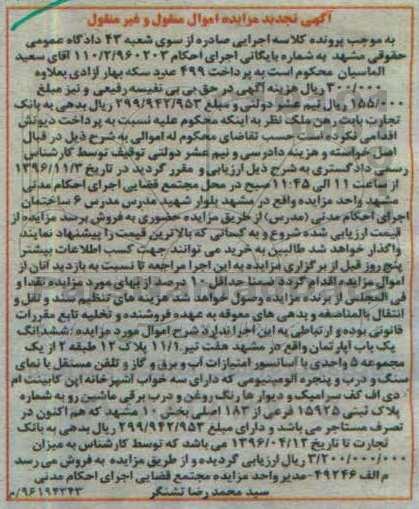 آگهی تجدید مزایده اموال منقول و غیر منقول
به موجب پرونده کلاسه اجرایی صادره از سوی شعبه ۴۳ دادگاه عمومی
حقوقی مشهد به شماره بایگانی اجرای احکام ۱۱۰/۲/۹۶۰۲۰۳ آقای سعید
الماسیان محکوم است به پرداخت ۴۹۹ عدد سکه بهار آزادی بعلاوه
۳۰۰/۰۰۰ ریال هزینه آگهی در حق بی بی نفیسه رفیعی و نیز مبلغ
۱۵۵/۰۰۰ ریال نیم عشر دولتی و مبلغ ۲۹۹/۹۴۲/۹۵۳ ریال بدهی به بانک
تجارت بابت رهن ملک نظر به اینکه محکوم علیه نسبت به پرداخت دیونش
اقدامی نکرده است حسب تقاضای محکوم له اموالی به شرح ذیل در قبال
اصل خواسته و هزینه دادرسی و نیم عشر دولتی توقیف توسط کارشناس
رسمی دادگستری به شرح ذیل ارزیابی و مقرر گردید در تاریخ ۱۳۹۶/۱۱/۳
از ساعت ۱۱ الی ۱۱:۴۵ صبح در محل مجتمع قضایی اجرای احکام مدنی
مشهد واحد مزایده واقع در مشهد بلوار شهید مدرس مدرس ۶ ساختمان
اجرای احکام مدنی (مدرس) از طریق مزایده حضوری به فروش برسد مزایده از
قیمت ارزیابی شده شروع و به کسانی که بالاترین قیمت را پیشنهاد نمایند
واگذار خواهد شد طالبین به خرید می توانند جهت کسب اطلاعات بیشتر
پنج روز قبل از برگزاری مزایده به این اجرا مراجعه تا نسبت به بازدید آنان از
اموال مزایده اقدام گردد ضمنا حداقل ۱۰ درصد از بهای مورد مزایده نقدا و
فی المجلس از برنده مزایده وصول خواهد شد هزینه های تنظیم سند و نقل و
انتقال بالمناصفه و بدهی های معوقه به عهده فروشنده و تخلیه تابع مقررات
قانونی بوده و ارتباطی به این اجرا ندارد شرح اموال مورد مزایده : ششدانگ
یک باب آپارتمان واقع در مشهد هفت تیر ۱۱/۱ پلاک ۱۲ طبقه ۲ از یک
مجموعه ۵ واحدی با آسانسور امتیازات آب و برق و گاز و تلفن مستقل با نمای
سنگ و درب و پنجره آلومینیومی که دارای سه خواب آشپزخانه اپن کابینت ام
دی اف کف سرامیک و دیوار ها رنگ روغن و درب برقی ماشین رو به شماره
پلاک ثبتی ۱۵۹۲۵ فرعی از ۱۸۳ اصلی بخش ۱۰ مشهد که هم اکنون در
تصرف مستاجر می باشد و دارای مبلغ ۲۹۹/۹۴۲/۹۵۳ ریال بدهی به بانک
تجارت تا تاریخ ۱۳۹۶/۰۴/۱۲ می باشد که توسط کارشناس به میزان
۳/۲۰۰/۰۰۰/۰۰۰ ریال ارزیابی گردیده و از طریق مزایده به فروش می رسد
م الف ۴۹۲۴۶-مدیر واحد مزایده مجتمع قضایی اجرای احکام مدنی
سید محمد رضا تشنگر
۹۶۱۹۴۲۴۳/م